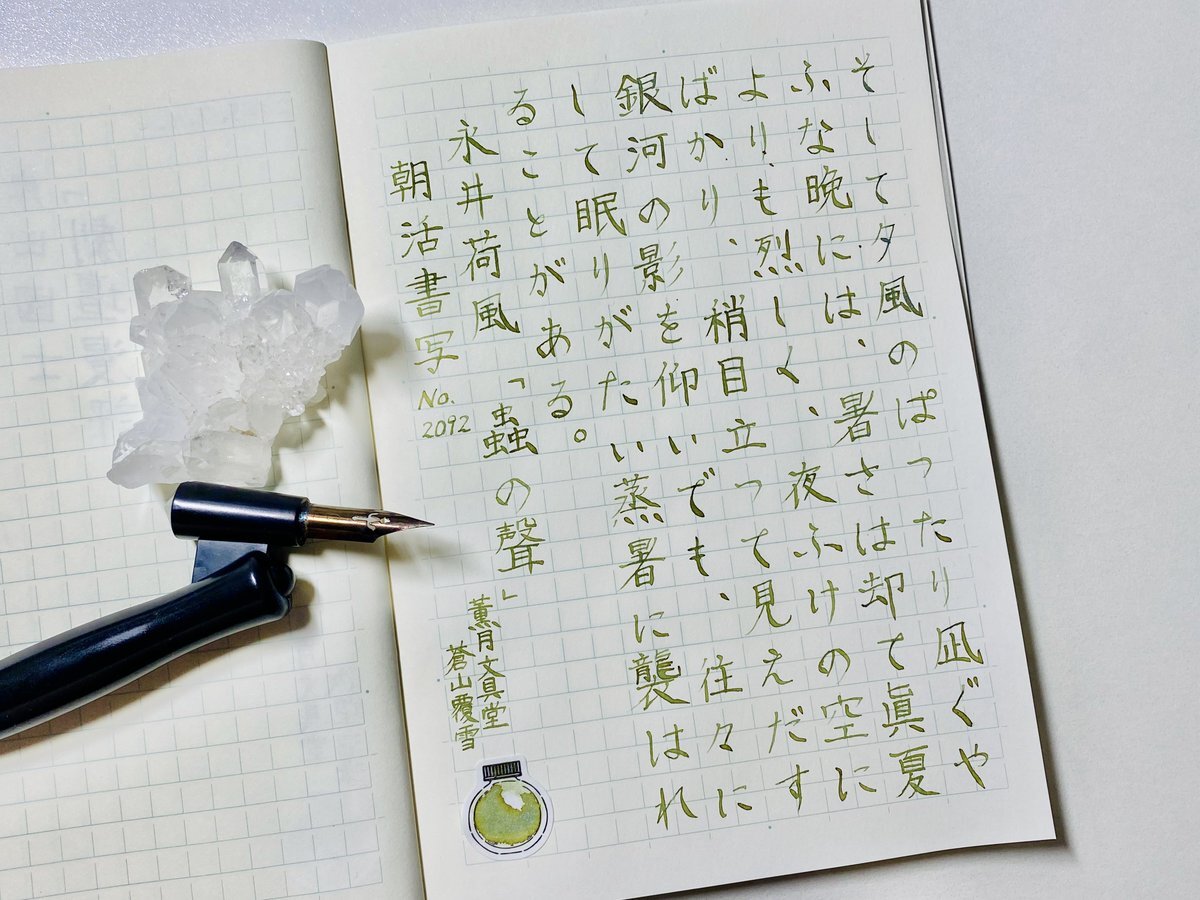 そして夕風のぱったり凪ぐや
ふな晩には、暑さは却て眞夏
よりも烈しく、夜ふけの空に
ばかり、稍目立って見えだす
銀河の影を仰いでも、往々に
して眠りがたい蒸暑に襲はれ
ることがある。
永井荷風「蟲の聲」
朝活書写 No. 2092
薫月文具堂
蒼山覆雪